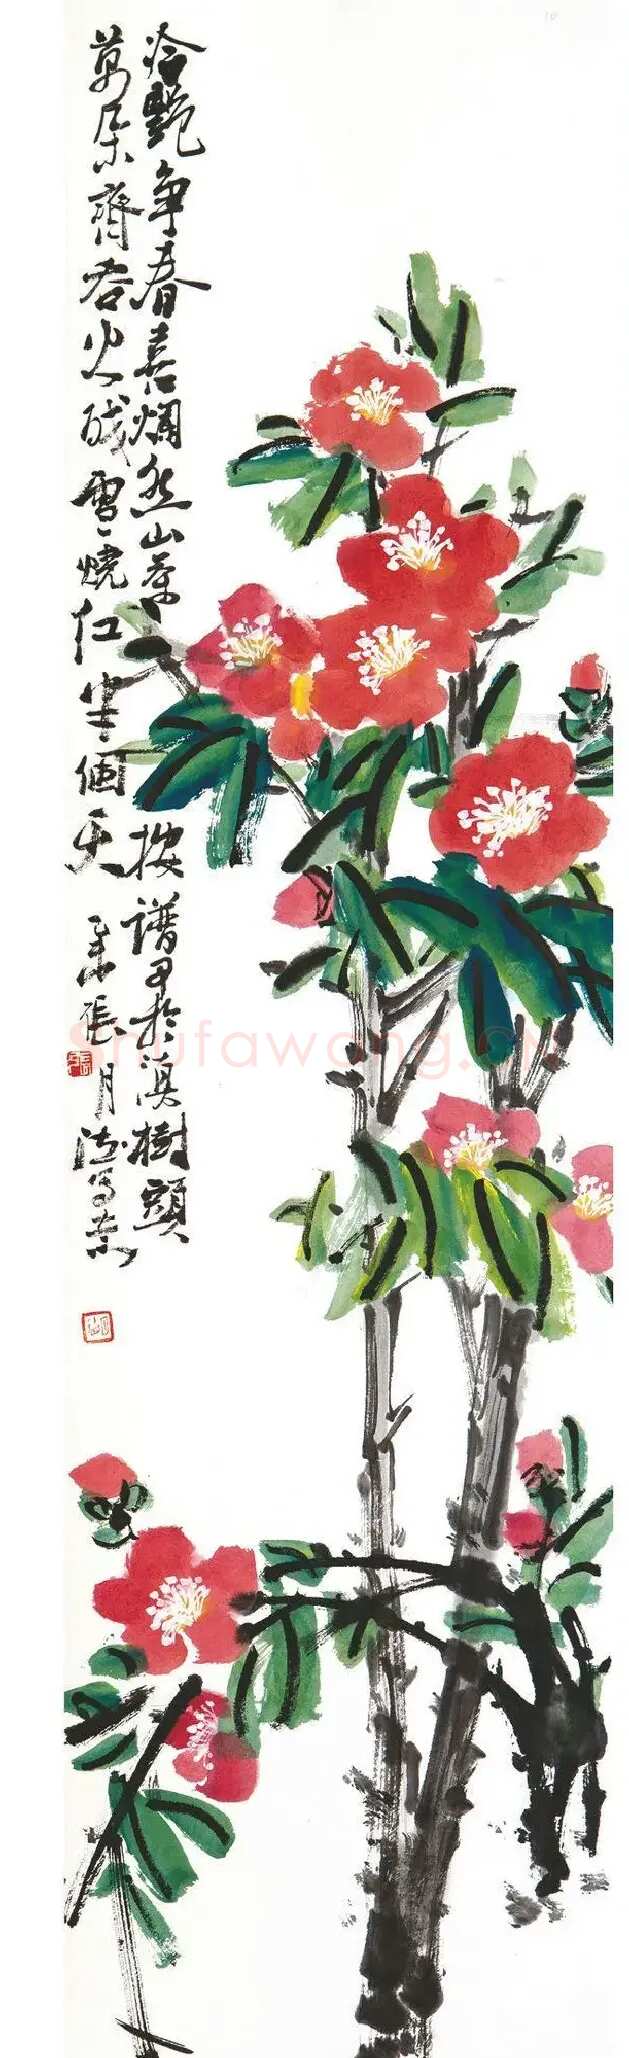 冷艷争春喜爛然山茶按譜甲於滇樹頭
萬朵齊吞火残雪燒红半個天
Shufawang.CN